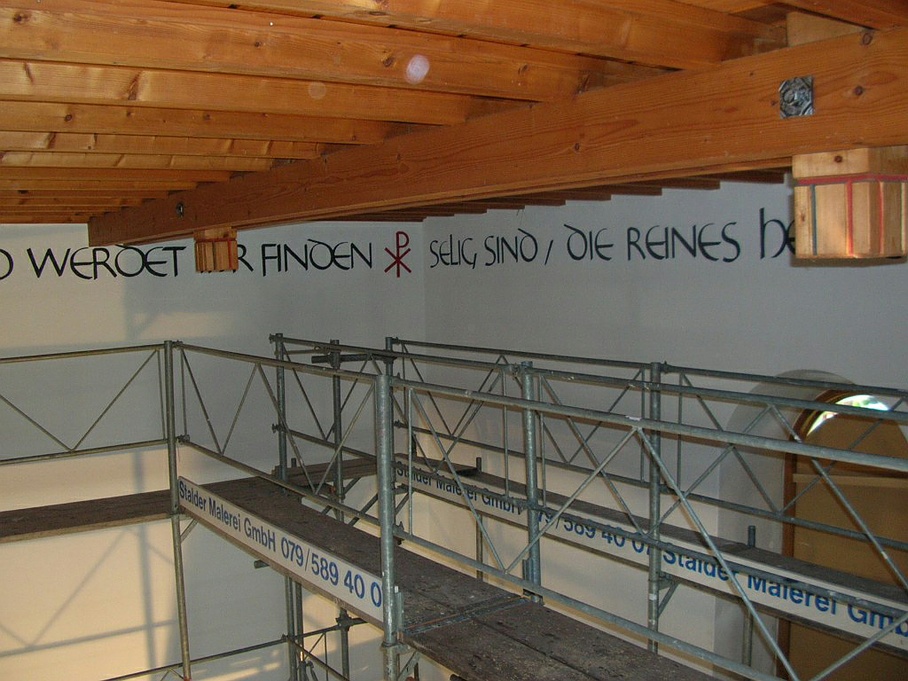 WERDET R FINDEN ☧ SELIG SIND / DIE REINES HE
Stalder Malerei GmbH 079/589 40 0
Stalder Malerei GmbH 079/589 40 0 Stalder Malerei Gmb